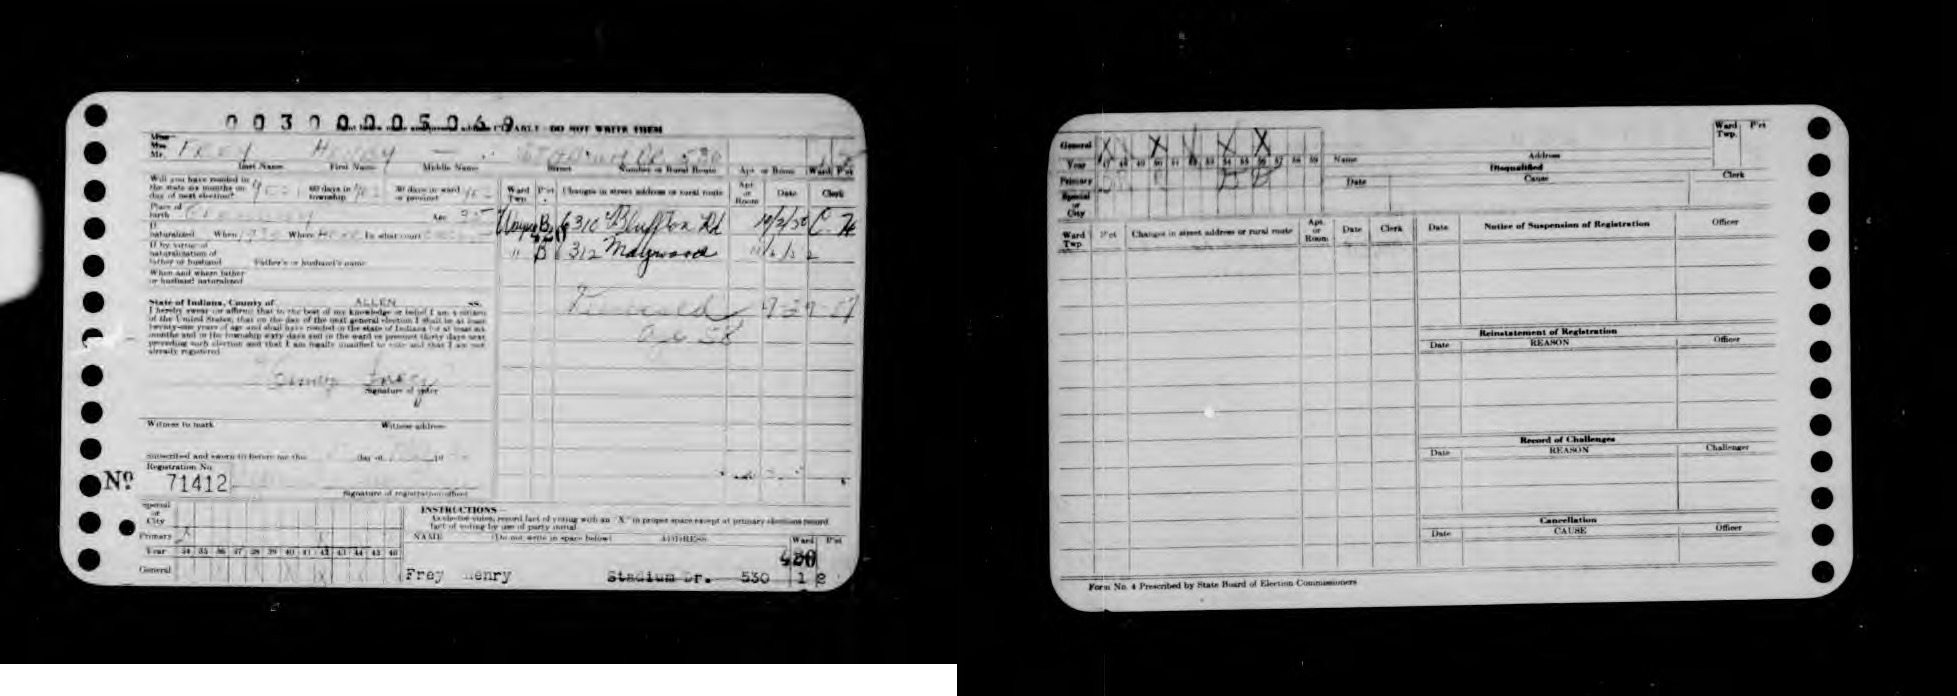 0030005069
PRINT below name and present address CLEARLY DO NOT WRITE THEM
Miss
Mrs.
Mr. FREY HENRY — STADIUM DR. 530 1
Last Name First Name Middle Name Street Number or Rural Route Apt. or Room Ward P'ct
Will you have resided in
the state six months on YES 60 days in YES 30 days in ward YES
day of next election? township or precinct
Ward Twp. P'ct Changes in street address or rural route Apt. or Room Date Clerk
Place of
birth GERMANY Age 35
Wayne B 6310 Bluffton Rd 10/3/50 C. H.
If
naturalized When Where HERE In what court
" B 312 Maywood
If by virtue of
naturalization of
father or husband Father's or husband's name
When and where father
or husband naturalized
State of Indiana, County of ALLEN ss.
I hereby swear (or affirm) that to the best of my knowledge or belief I am a citizen
of the United States, that on the day of the next general election I shall be at least
twenty-one years of age and shall have resided in the state of Indiana for at least six
months and in the township sixty days and in the ward or precinct thirty days next
preceding such election and that I am legally qualified to vote and that I am not
already registered.
age 58
Henry Frey
Signature of voter
Witness to mark Witness address
Subscribed and sworn to before me this day of 19
Registration No.
No. 71412
Signature of registration officer
Special
or
City
Primary X
Year 34 35 36 37 38 39 40 41 42 43 44 45 46
General
INSTRUCTIONS—
As elector votes, record fact of voting with an "X" in proper space except at primary elections record
fact of voting by use of party initial
NAME (Do not write in space below) ADDRESS Ward P'ct
430
Frey Henry Stadium Dr. 530 1 2
General X X X X
Year 47 48 49 50 51 52 53 54 55 56 57 58 59
Primary
Special
or
City
Name Address Ward Twp. P'ct
Disqualified
Date Cause Clerk
Ward Twp. P'ct Changes in street address or rural route Apt. or Room Date Clerk
Date Notice of Suspension of Registration Officer
Reinstatement of Registration
Date REASON Officer
Record of Challenges
Date REASON Challenger
Cancellation
Date CAUSE Officer
Form No. 4 Prescribed by State Board of Election Commissioners